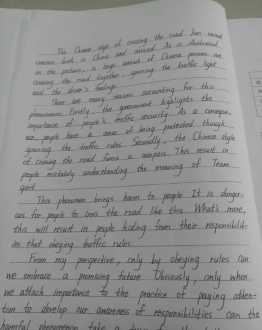 The Chinese style of crossing the road has raised
concern both in China and abroad. As is illustrated
in the picture, a large amount of Chinese persons are
crossing the road together, ignoring the traffic light
and the driver's feelings.
There are many reasons accounting for this
phenomenon. Firstly, the government highlights the
importance of people's traffic security. As a consequen-
ce people have a sense of being protected though
ignoring the traffic rules. Secondly, the Chinese style
of crossing the road forms a rampass. This result in
people mistakenly understanding the meaning of Team
spirit.
This phenomenon brings harm to people. It is danger-
ous for people to cross the road like this. What's more,
this will result in people hiding from their responsibilit-
ies that obeying traffic rules.
From my perspective, only by obeying rules can
we embrace a promising future. Obviously, only when
we attach importance to the practice of paying atten-
tion to develop our awareness of responsibilities can the
harmful phenomenon take a